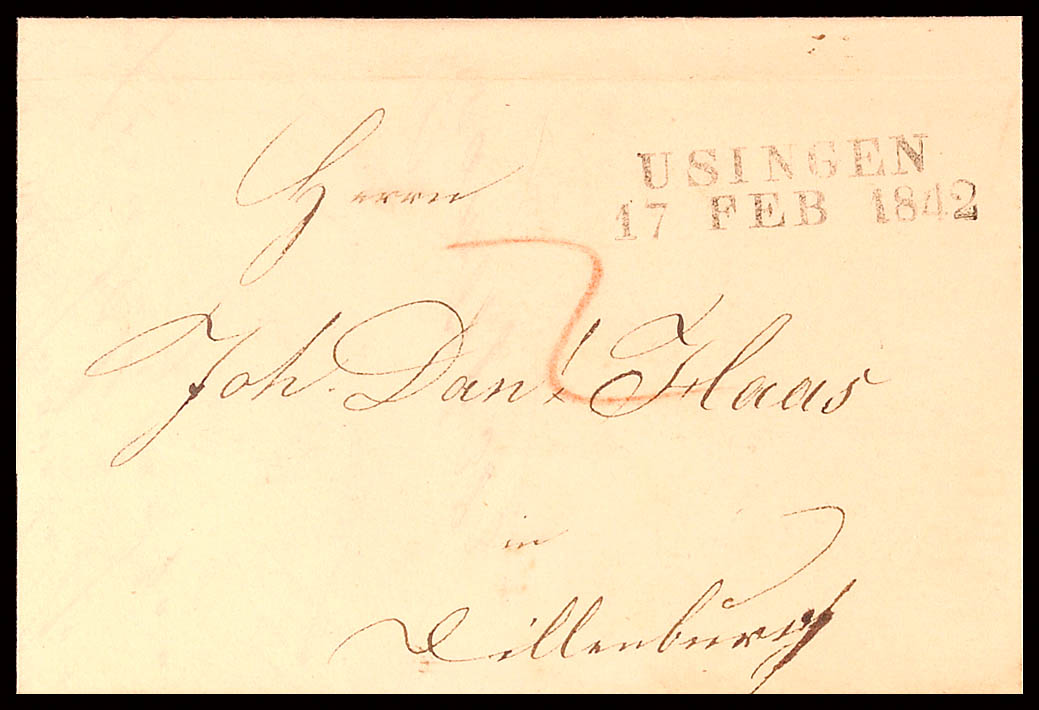 USINGEN
17 FEB 1842
Herrn
Joh. Danl. Haas
in
Dillenburg